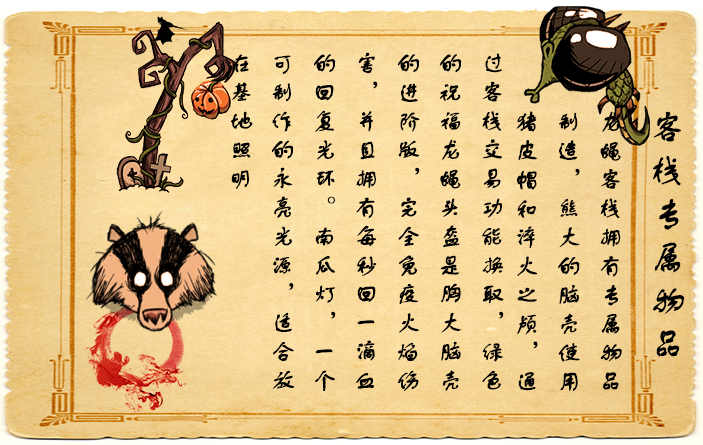 客栈专属物品
龙蝇客栈拥有专属物品
制造，熊大的脑壳使用
猪皮帽和淬火之颅，通
过客栈交易功能换取，绿色
的祝福龙蝇头盔是胸大脑壳
的进阶版，完全免疫火焰伤
害，并且拥有每秒回一滴血
的回复光环。南瓜灯，一个
可制作的永亮光源，适合放
在基地照明